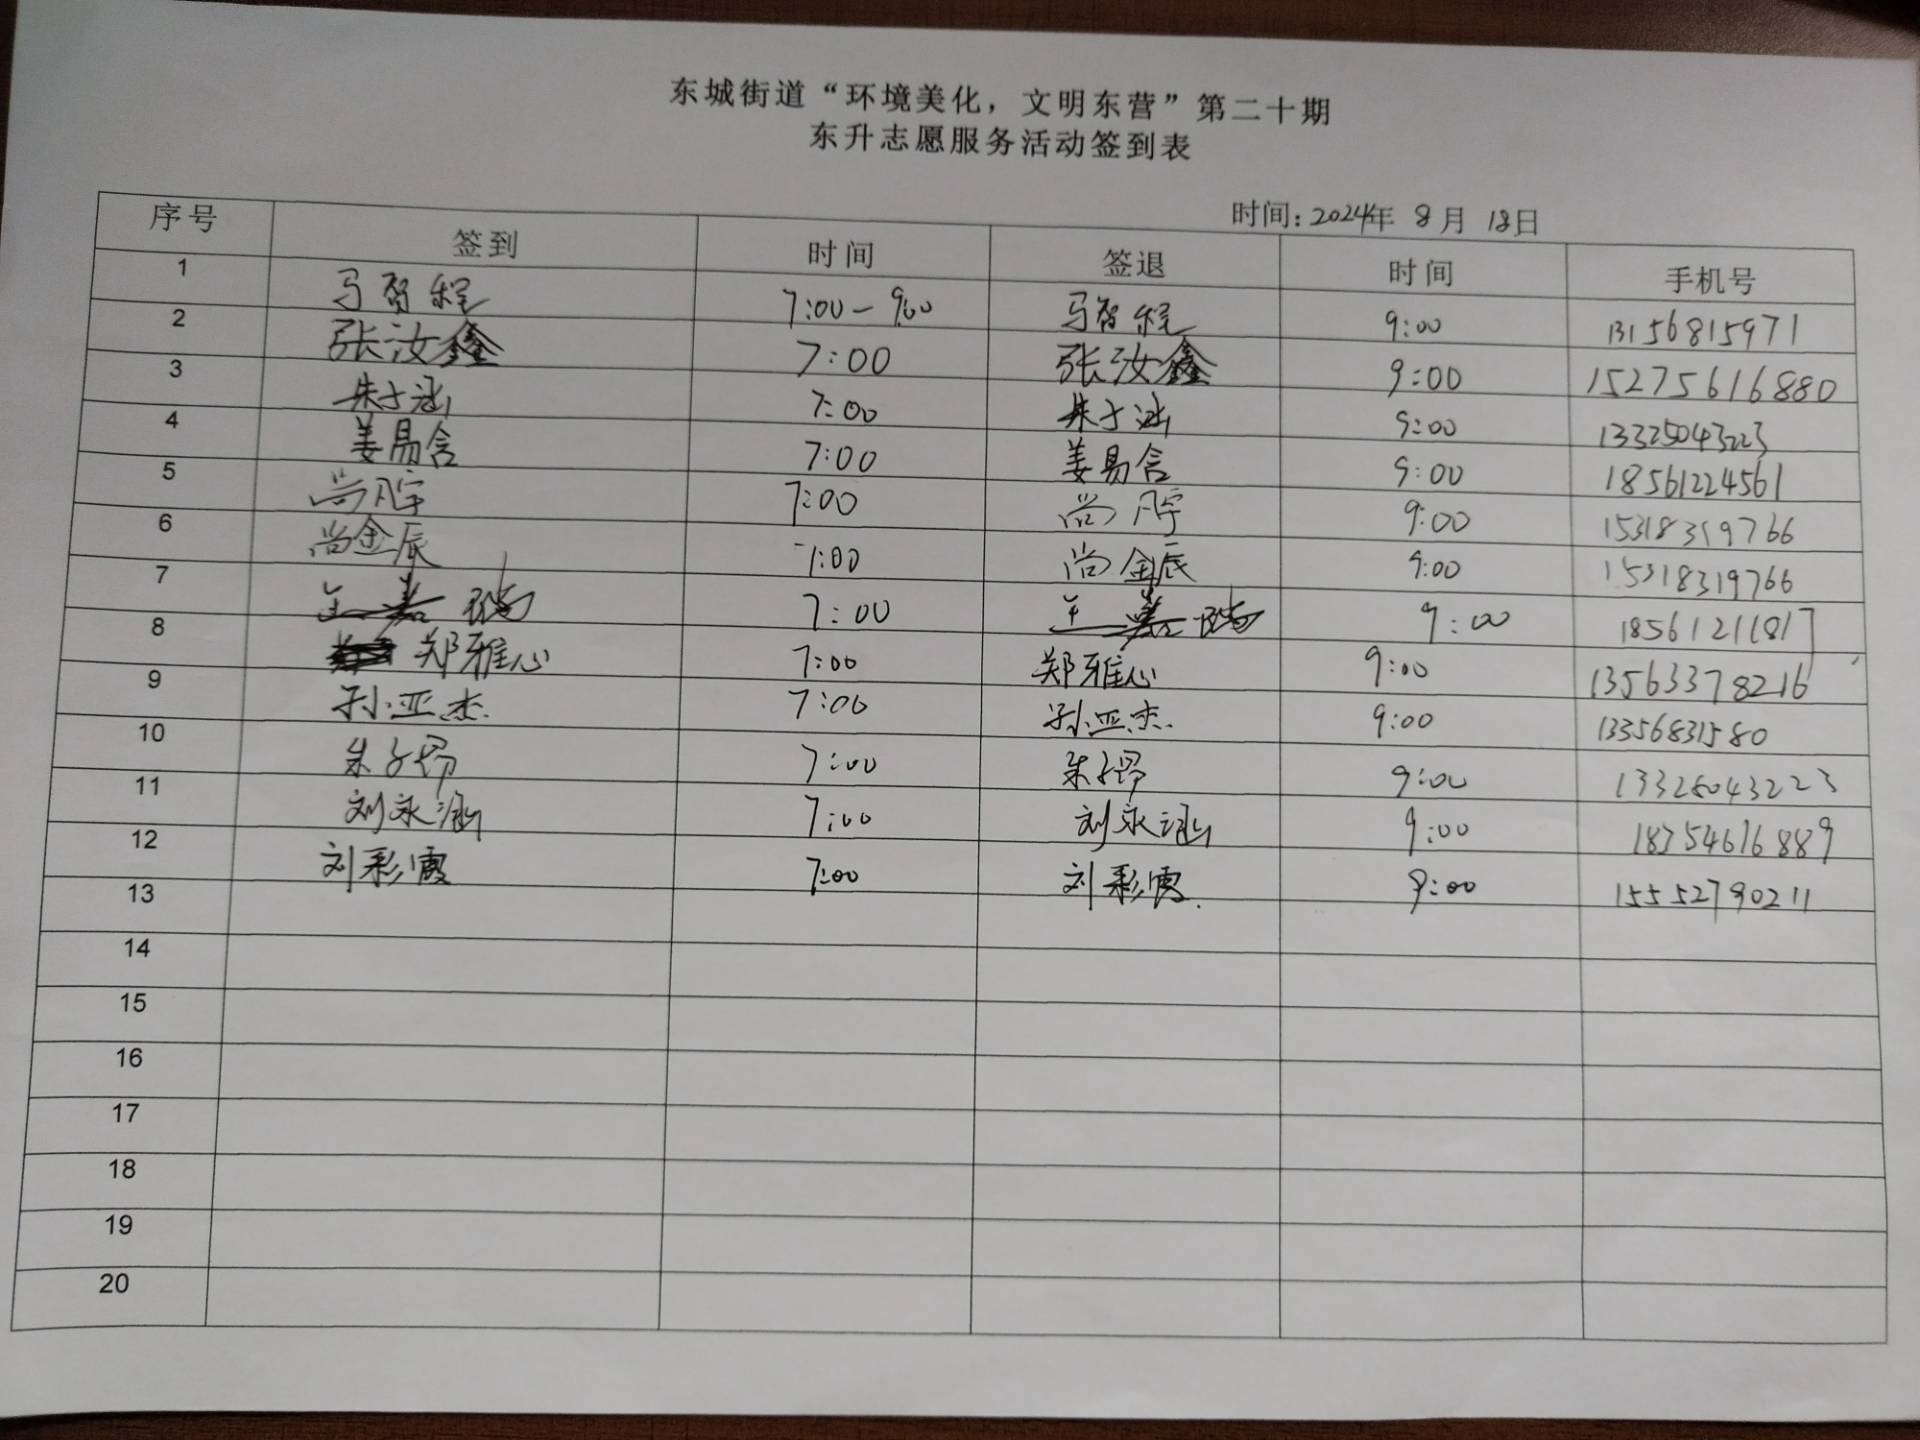 东城街道“环境美化，文明东营”第二十期
东升志愿服务活动签到表
时间：2024年 8月 18日
序号 签到 时间 签退 时间 手机号
1 马智程 7:00-9:00 马智程 9:00 13156815971
2 张汝鑫 7:00 张汝鑫 9:00 15275616880
3 朱子涵 7:00 朱子涵 9:00 13325043223
4 姜易含 7:00 姜易含 9:00 18561224561
5 尚凡宇 7:00 尚凡宇 9:00 15318319766
6 尚金辰 7:00 尚金辰 9:00 15318319766
7 王嘉瑞 7:00 王嘉瑞 9:00
8 郑雅心 7:00 郑雅心 9:00 13563378216
9 孙亚杰 7:00 孙亚杰 9:00 13356831580
10 朱子昂 7:00 朱子昂 9:00
11 刘永涵 7:00 刘永涵 9:00
12 刘彩霞 7:00 刘彩霞 9:00
13
14
15
16
17
18
19
20